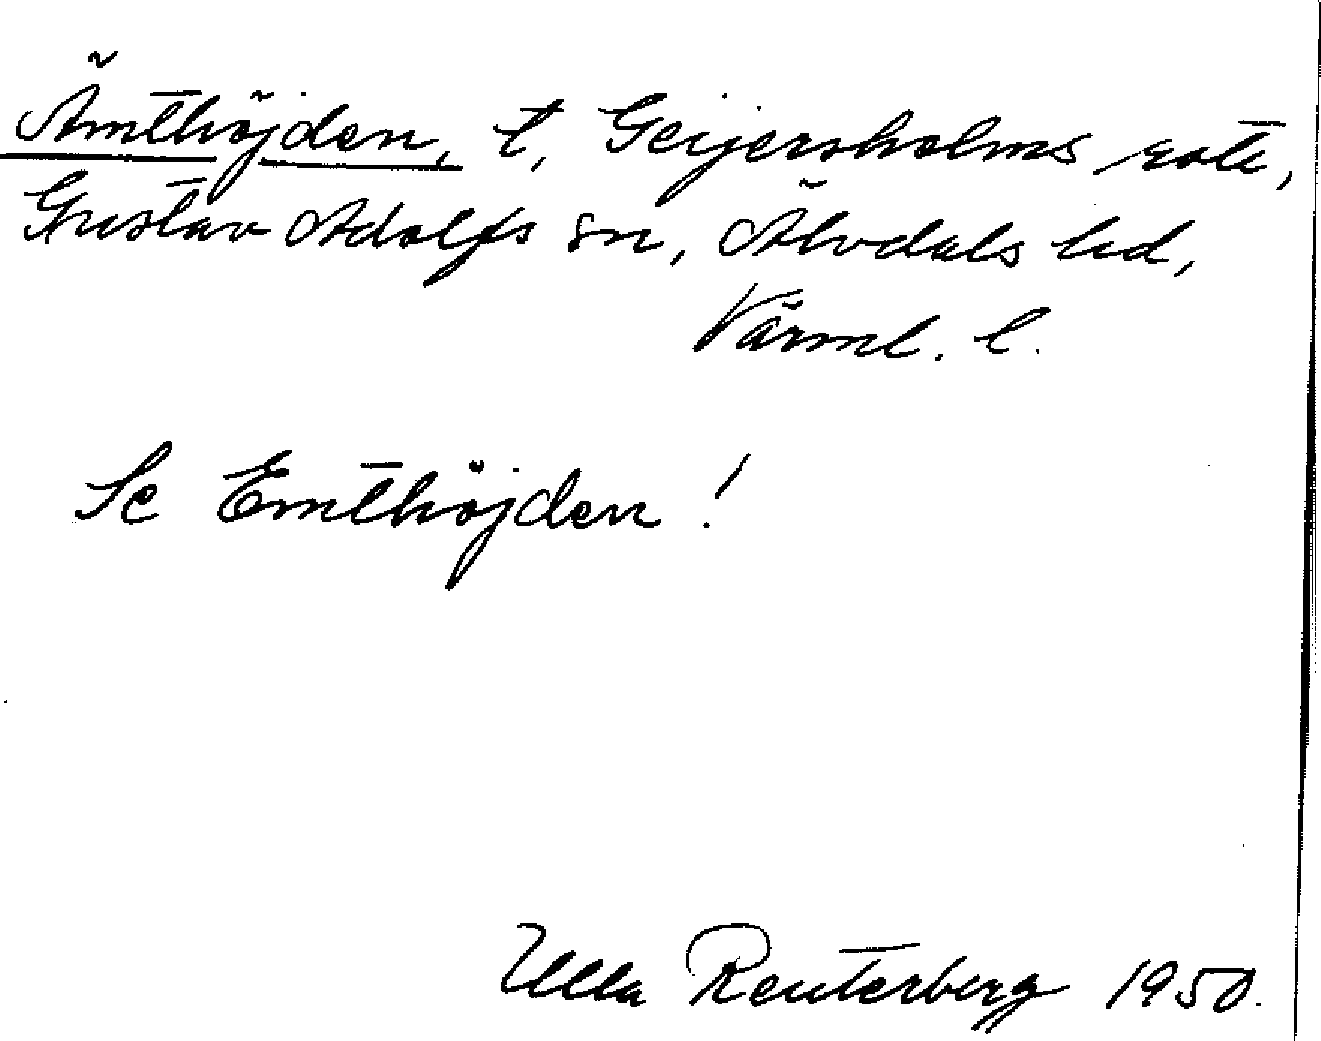 Ämthöjden, t, Geijersholms rote,
Gustav Adolfs sn, Älvdals hd,
Värml. l.
Se Emthöjden!
Ulla Reuterberg 1950.